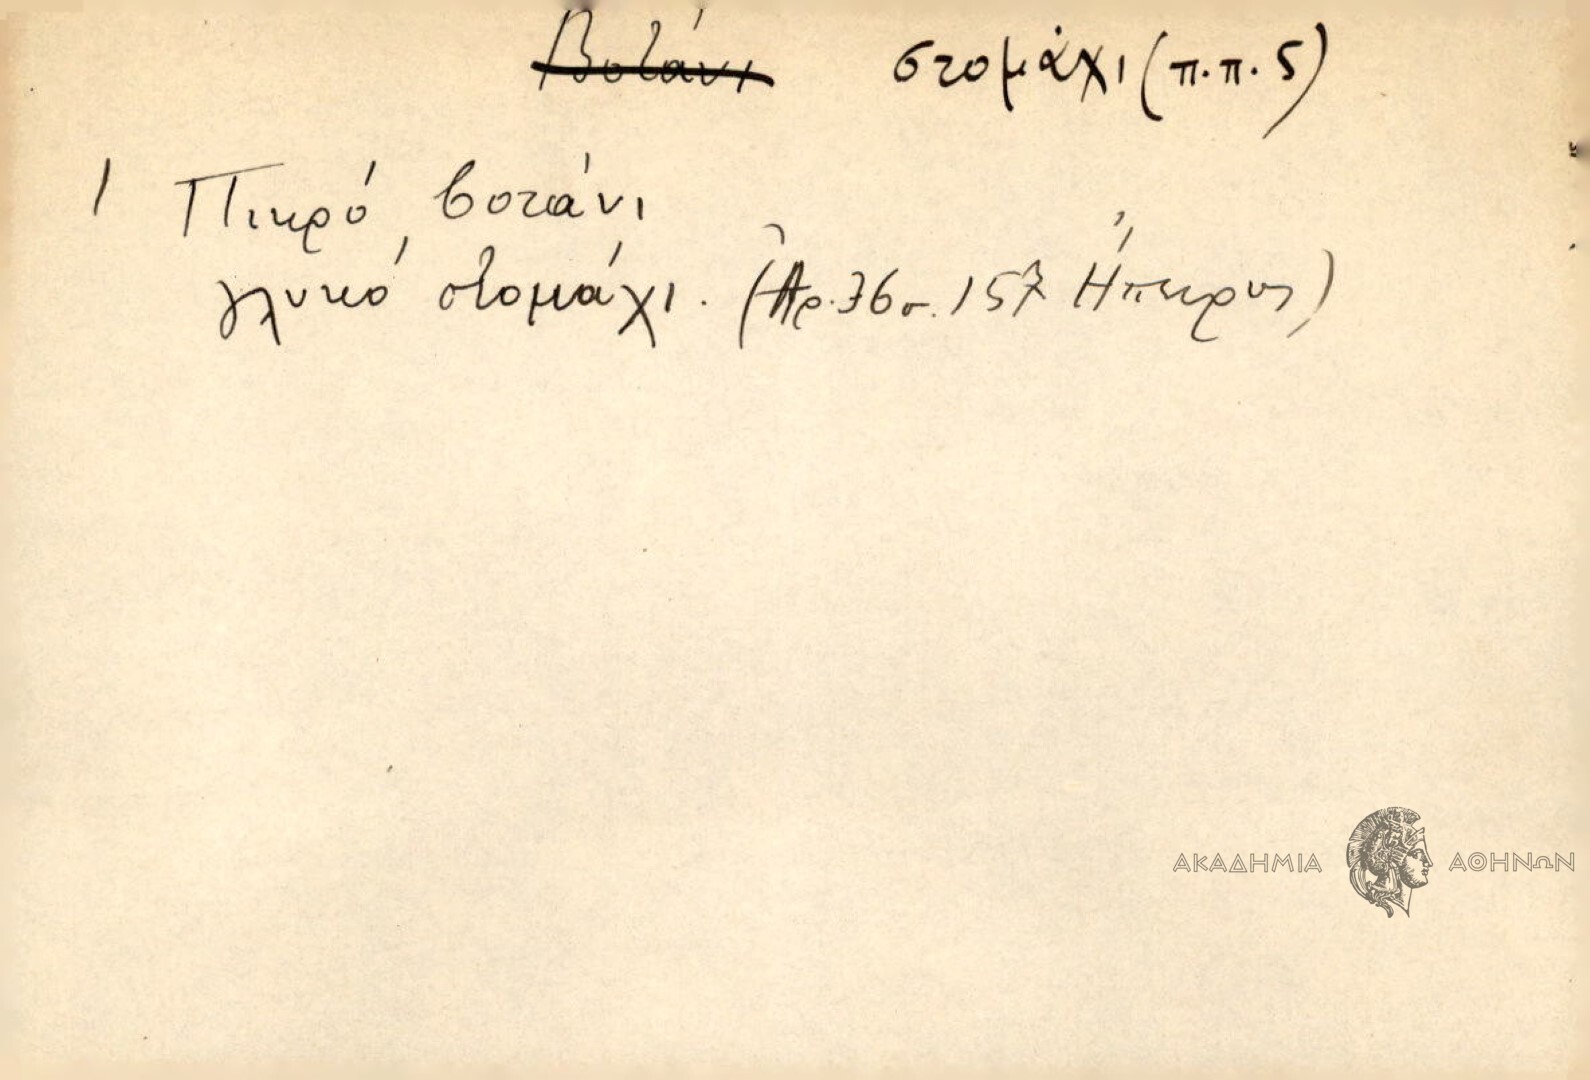 Βοτάνι στομάχι (π.π. 5)
1 Πικρό βοτάνι
γλυκό στομάχι. (Ἀρ. 36 σ. 157 Ἤπειρος)
ΑΚΑΔΗΜΙΑ ΑΘΗΝΩΝ